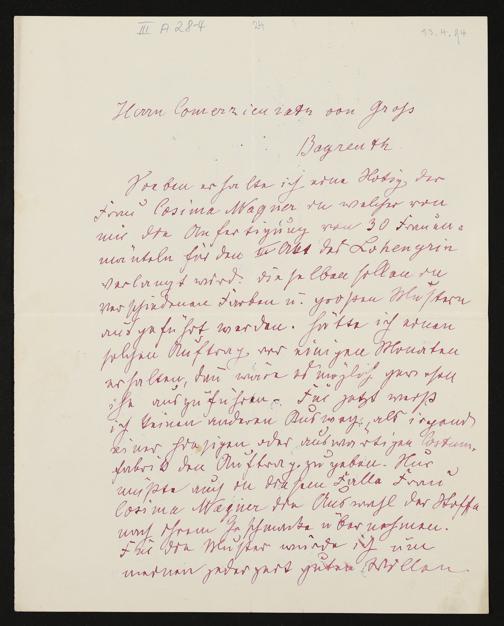 III A 28-4 24 13.4.94
Herrn Comerzienrath von Groß
Bayreuth.
Soeben erhalte ich eine Notiz der
Frau Cosima Wagner in welcher von
mir die Anfertigung von 30 Frauen=
mänteln für den II Akt des Lohengrin
verlangt wird. dieselben sollen in
verschiedenen Farben u. großen Mustern
ausgeführt werden. Hätte ich einen
solchen Auftrag vor einigen Monaten
erhalten, dann wäre es möglich gewesen
ihn auszuführen. Für jetzt weiß
ich keinen anderen Ausweg, als irgend
einer hiesigen oder auswärtigen Costüm-
fabrik den Auftrag zu geben. Nur
müßte auch in diesem Falle Frau
Cosima Wagner die Auswahl der Stoffe
nach ihrem Geschmacke übernehmen.
Für die Muster würde ich um
meinen jederzeit guten Willen